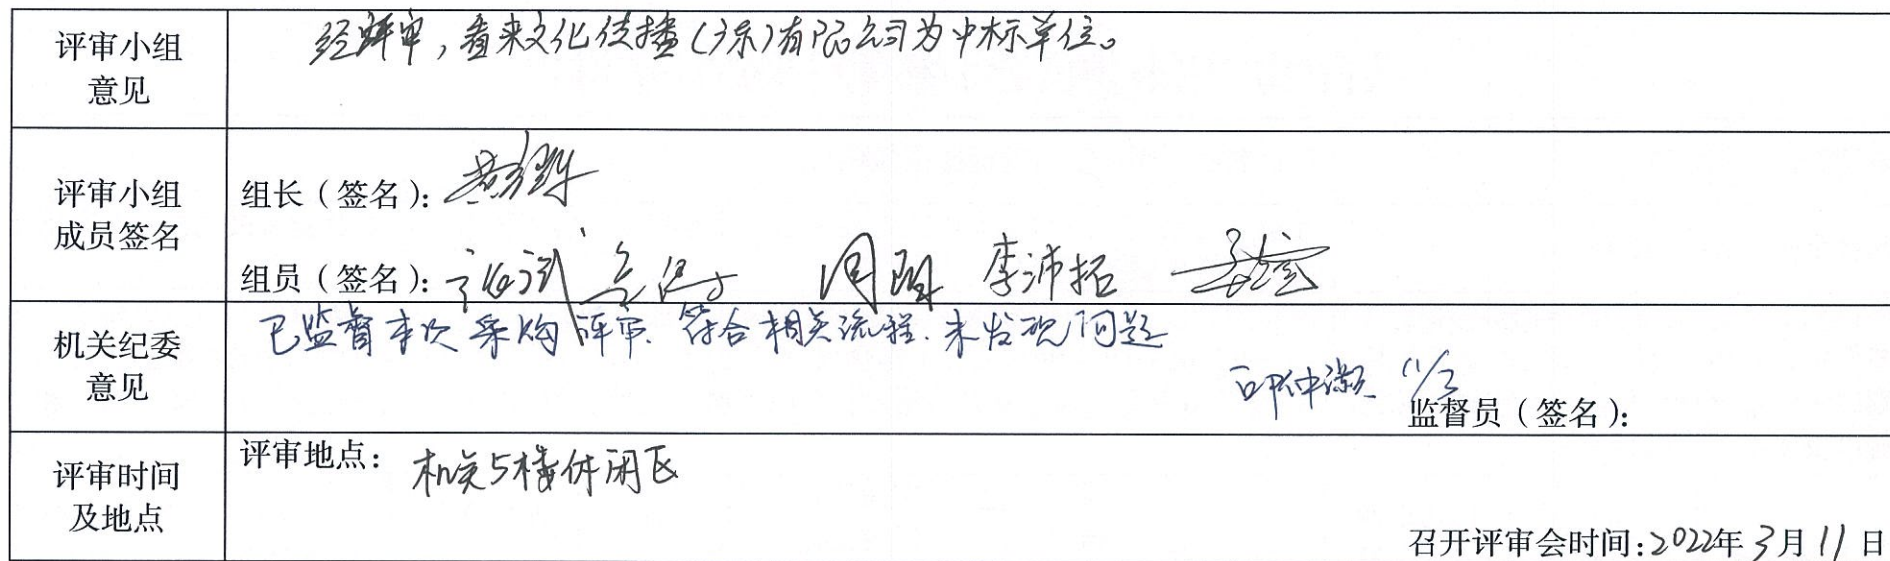 评审小组
意见
经评审，看来文化传播（广东）有限公司为中标单位。
评审小组
成员签名
组长（签名）：
组员（签名）： 周 李沛拓
机关纪委
意见
已监督本次采购评审．符合相关流程．未发现问题
仲灏 11/3
监督员（签名）：
评审时间
及地点
评审地点： 机关5楼休闲区
召开评审会时间：2022年3月11日